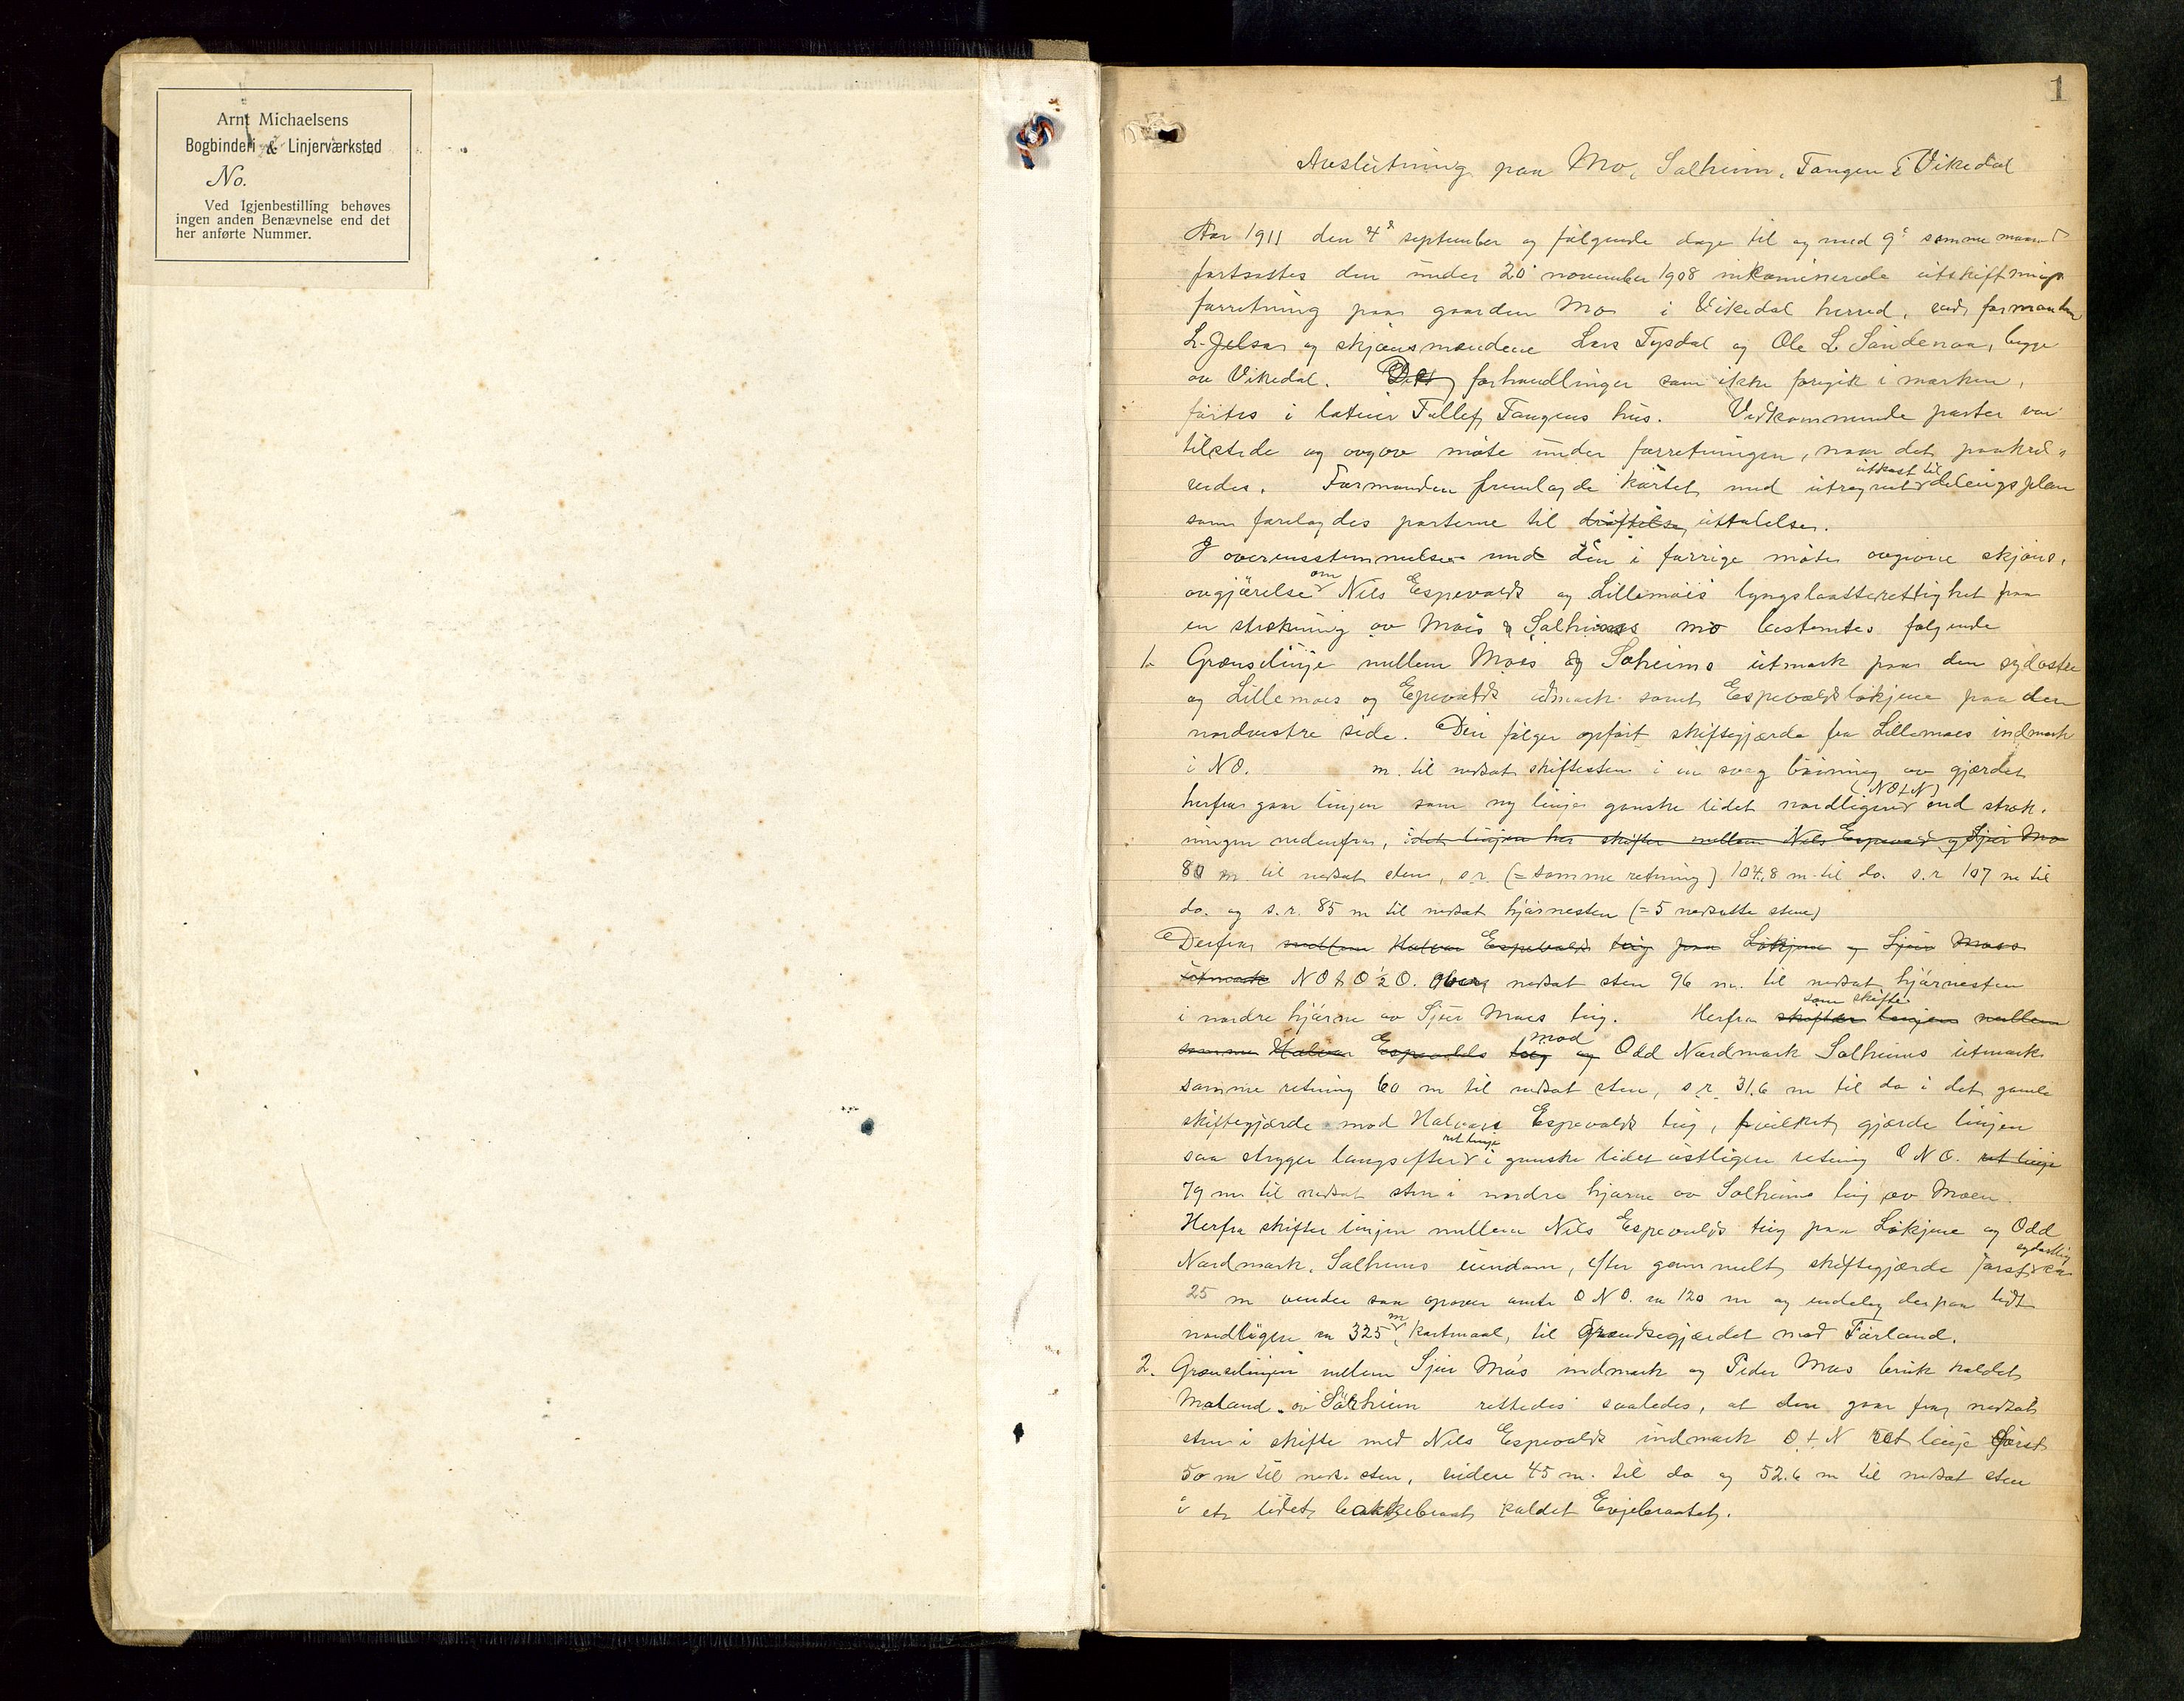 Arnt Michaelsens
Bogbinderi & Linjerværksted
No.
Ved Igjenbestilling behøves
ingen anden Benævnelse end det
her anførte Nummer.
1
Avslutning paa Mo, Salheim, Tangen i Vikedal
Aar 1911 den 4de september og følgende dage til og med 9de samme maaned
fortsattes den under 20de november 1908 inkaminerede utskiftnings
forretning paa gaarden Mo i Vikedal herred, ved formanden
L. Jelsa og skjønsmændene Lars Tysdal og Ole L. Sandenaa, begge
av Vikedal. De forhandlinger som ikke foregik i marken,
førtes i Tollef Tangens hus. Vedkommende parter var
tilstede og avgav møte under forretningen, naar det paakræ-
vedes. Formanden fremlagde kartet med utregnet utkast til delingsplan
som forelagdes parterne til drøftelse, uttalelse.
I overensstemmelse med den i forrige møte avgivne skjøns-
avgjørelse om Nils Espevolds og Lillemois lyngslaatterettighet paa
en strækning av Mois & Salheims mo bestemtes følgende
1. Grænselinje mellem Mois og Solheims utmark paa den sydøstre
og Lillemoes og Epevolds utmark samt Espevolds løkjene paa den
nordvestre side. Den følger opført skiftegjærde fra Lillemoes indmark
i NO. m. til nedsat skiftesten i en svag bøining av gjærdet
herfra gaar linjen som ny linje ganske lidet nordligere (NO t N) end stræk-
ningen nedenfra, idet linjen her skifter mellem Nils Espevold og Sjur Mo
80 m til nedsat sten, s.r. (= samme retning) 104.8 m til do. s.r 107 m til
do. og s.r. 85 m til nedsat hjørnesten (= 5 nedsatte stene)
Derfra mellem Halvor Espevolds teig paa Løkjene og Sjur Moes
utmark NO t O ½ O. nedsat sten 96 m. til nedsat hjørnesten
i nordre hjørne av Sjur Moes teig. Herfra som skifte skifter linjen mellem
samme Halvor Espevolds teig og mod Odd Nordmark Solheims utmark
samme retning 60 m til nedsat sten, s.r. 31.6 m til do i det gamle
skiftegjærde mod Halvors Espevolds teig, hvilket gjærde linjen
saa stryger langsefter ret linje i ganske lidet østligere retning O N O. ret linje
79 m til nedsat sten i nordre hjørne av Solheims teig av Moen.
Herfra skifter linjen mellem Nils Espevolds teig paa Løkjene og Odd
Nordmark, Salheims eiendom, efter gammelt skiftegjærde først sydøstlig ca
25 m vender saa opover omtr O N O. ca 120 m og endelig derpaa lidt
nordligere ca 325 m, kartmaal, til Grændsegjærdet mod Førland.
2. Grænselinjen mellem Sjur Mo's indmark og Peder Moes bruk kaldet
Moland av Sørheim rettedes saaledes, at den gaar fra nedsat
sten i skifte med Nils Espevolds indmark O t N ret linje først
50 m til neds. sten, videre 45 m. til do og 52.6 m til nedsat sten
i et lidet bakkebraat kaldet Evjebraatet.